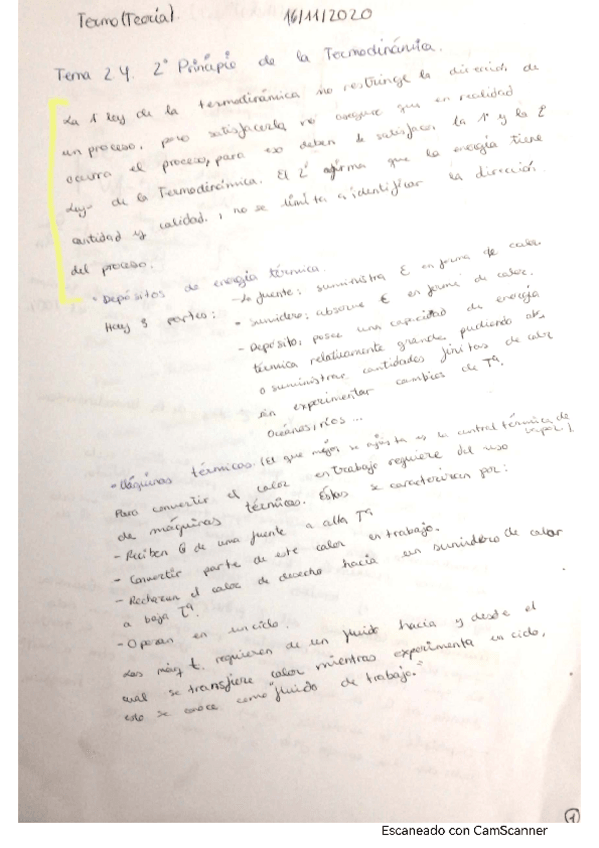 Termo (Teoría) 16/11/2020
Tema 2.4. 2º Principio de la Termodinámica.
La 1ª ley de la termodinámica no restringe la dirección de
un proceso, pero satisfacerla no asegura que en realidad
ocurra el proceso, para eso deben de satisfacer la 1ª y la 2ª
Ley de la Termodinámica. El 2º afirma que la energía tiene
cantidad y calidad, y no se limita a identificar la dirección
del proceso.
- Depósitos de energía térmica.
Hay 3 partes:
- La fuente: suministra E en forma de calor
- sumidero: absorve E en forma de calor.
- Depósito: posee una capacidad de energía
térmica relativamente grande, pudiendo abs.
o suministrar cantidades finitas de calor
sin experimentar cambios de Tª.
Océanos, ríos ...
- Máquinas térmicas. (El que mejor se ajusta es la central térmica de
vapor)
Para convertir el calor en trabajo requiere del uso
de máquinas térmicas. Éstas se caracterizan por:
- Reciben Q de una fuente a alta Tª
- Convertir parte de este calor en trabajo.
- Rechazan el calor de desecho hacia un sumidero de calor
a baja Tª.
- Operan en un ciclo.
Las máq t. requieren de un fluido hacia y desde el
cual se transfiere calor mientras experimenta un ciclo,
esto se conoce como "fluido de trabajo."
1
Escaneado con CamScanner